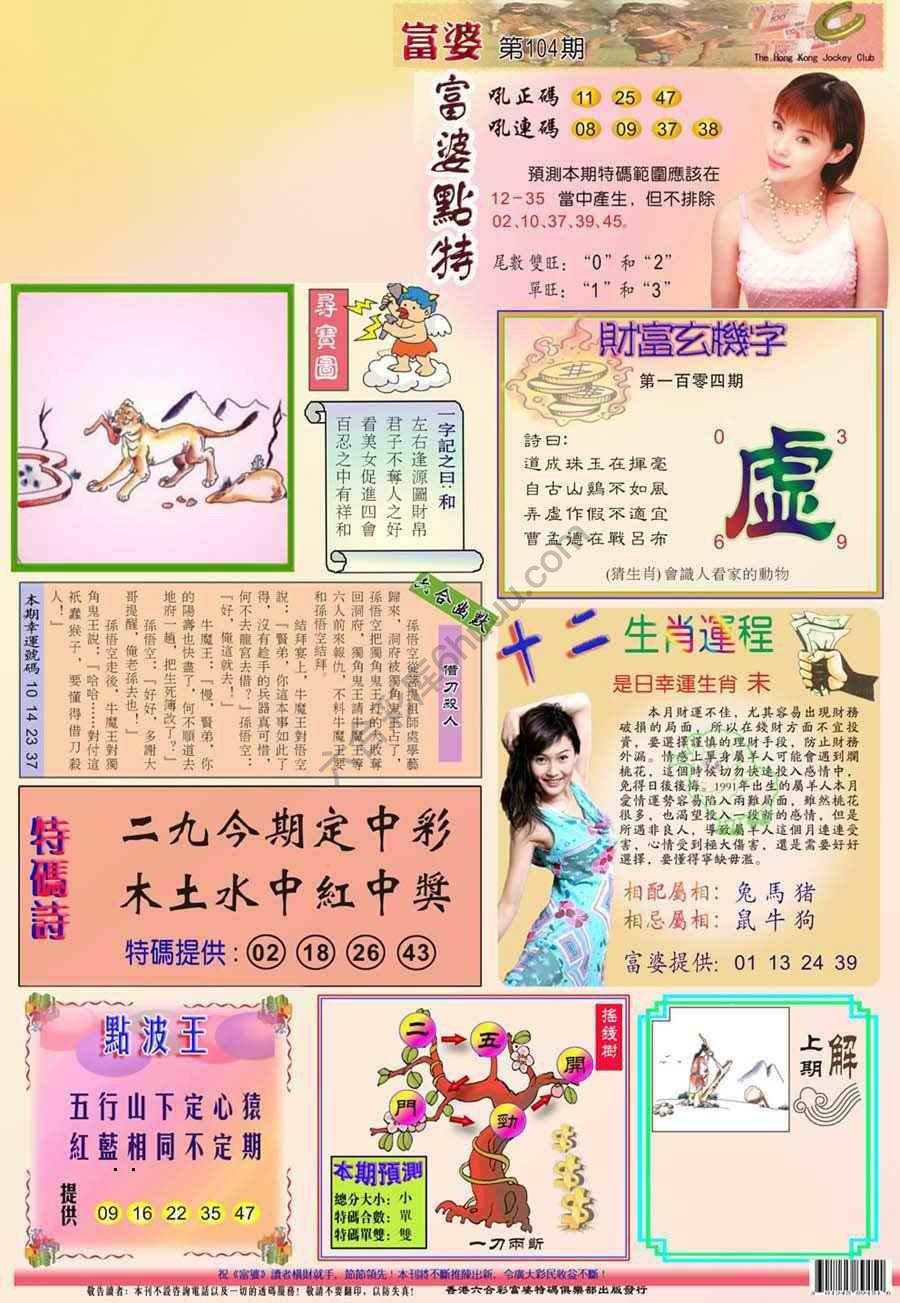 富婆 第104期
The Hong Kong Jockey Club
富婆點特
吼正碼 11 25 47
吼連碼 08 09 37 38
預測本期特碼範圍應該在
12-35 當中產生，但不排除
02,10,37,39,45。
尾數雙旺：“0”和“2”
單旺：“1”和“3”
尋寶圖
一字記之曰：和
左右逢源圖財帛
君子不奪人之好
看美女促進四會
百忍之中有祥和
財富玄機字
第一百零四期
詩曰：
道成珠玉在揮毫
自古山鷄不如風
弄虛作假不適宜
曹孟德在戰呂布
0 3
虛
6 9
(猜生肖)會識人看家的動物
六合幽默
借刀殺人
孫悟空從菩提祖師處學藝
歸來，洞府被獨角鬼王占了，
孫悟空把獨角鬼王打的大敗奪
回洞府，獨角鬼王請牛魔王等
六人前來報仇，不料牛魔王要
和孫悟空結拜。
結拜宴上，牛魔王對悟空
說：“賢弟，你這本事如此了
得，沒有趁手的兵器真可惜，
何不去龍宮去借？”孫悟空：
“好，俺這就去！”
牛魔王：“慢，賢弟，你
的陽壽也快盡了，何不順道去
地府一趟，把生死簿改了？”
孫悟空：“好好，多謝大
哥提醒，俺老孫去也！”
孫悟空走後，牛魔王對獨
角鬼王說：“哈哈……對付這
祇蠢猴子，要懂得借刀殺
人！”
本期幸運號碼 10 14 23 37
十二生肖運程
是日幸運生肖 未
本月財運不佳，尤其容易出現財務
破損的局面，所以在錢財方面不宜投
資，要選擇謹慎的理財手段，防止財務
外漏。情感上單身屬羊人可能會遇到爛
桃花，這個時候切勿快速投入感情中，
免得日後後悔。1991年出生的屬羊人本月
愛情運勢容易陷入兩難局面，雖然桃花
很多，也渴望投入一段新的感情，但是
所遇非良人，導致屬羊人這個月連連受
害，心情受到極大傷害，還是需要好好
選擇，要懂得寧缺毋濫。
相配屬相：兔馬豬
相忌屬相：鼠牛狗
富婆提供：01 13 24 39
特碼詩
二九今期定中彩
木土水中紅中獎
特碼提供：02 18 26 43
點波王
五行山下定心猿
紅藍相同不定期
提供 09 16 22 35 47
搖錢樹
二 五
開
門 勁
本期預測
總分大小：小
特碼合數：單
特碼單雙：雙
一刀兩斷
上期解
祝《富婆》讀者橫財就手，節節領先！本刊將不斷推陳出新，令廣大彩民收益不斷！
敬告讀者：本刊不設咨詢電話以及一切的透碼服務！敬請不要翻印，以防失真！ 香港六合彩富婆特碼俱樂部出版發行